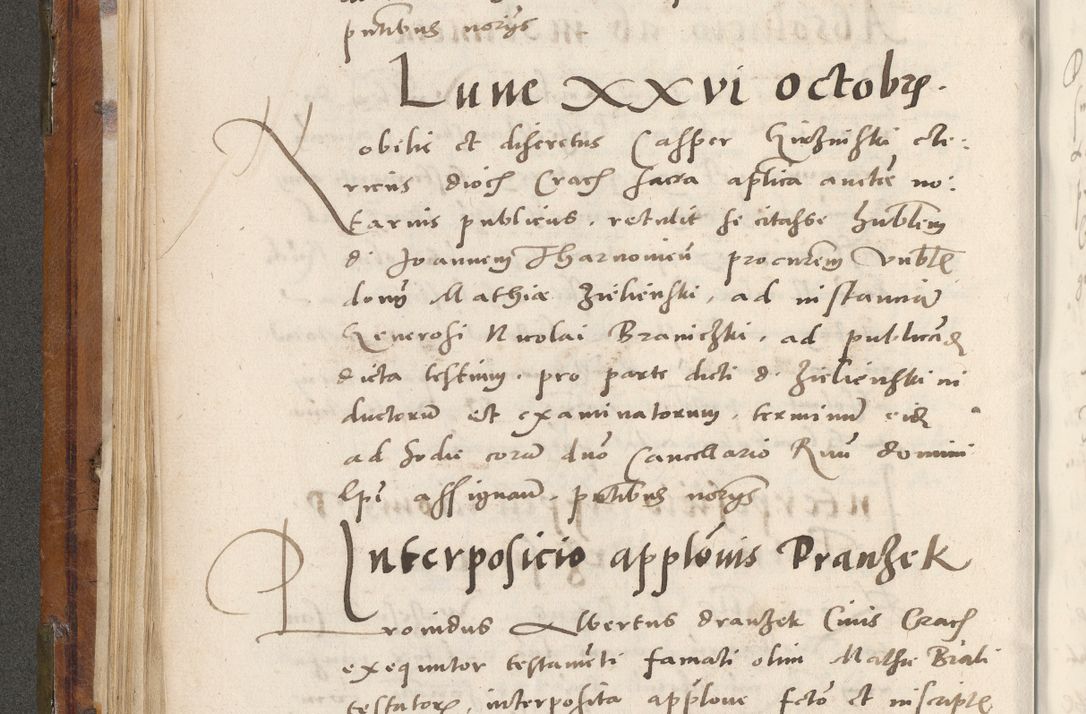 pntibus norys
Lune XXVI octobrs.
Nobilis et discretus Casper Girzinski cle-
ricus dioc Crac sacra aplica aucte no-
tarius publicus, retulit se citasse honblem
d. Joannem Tharnomen procurem Vnblis
domi Mathiæ Zielienski, ad instantia
Generosi Nicolai Braniczki, ad publicad
dicta testium, pro parte dicti d. Zielienski in
ductorum et examinatorum, terminum eid
ad hodie coram dno Cancellario Rmi domini
Epi assignavi, pntibus norys
Interposicio applonis Dranzek
Providus Albertus Dranzek Civis Crac
exequutor testamenti famati olim Mathie Brali
testatore, interposita applone scto et inscriptis